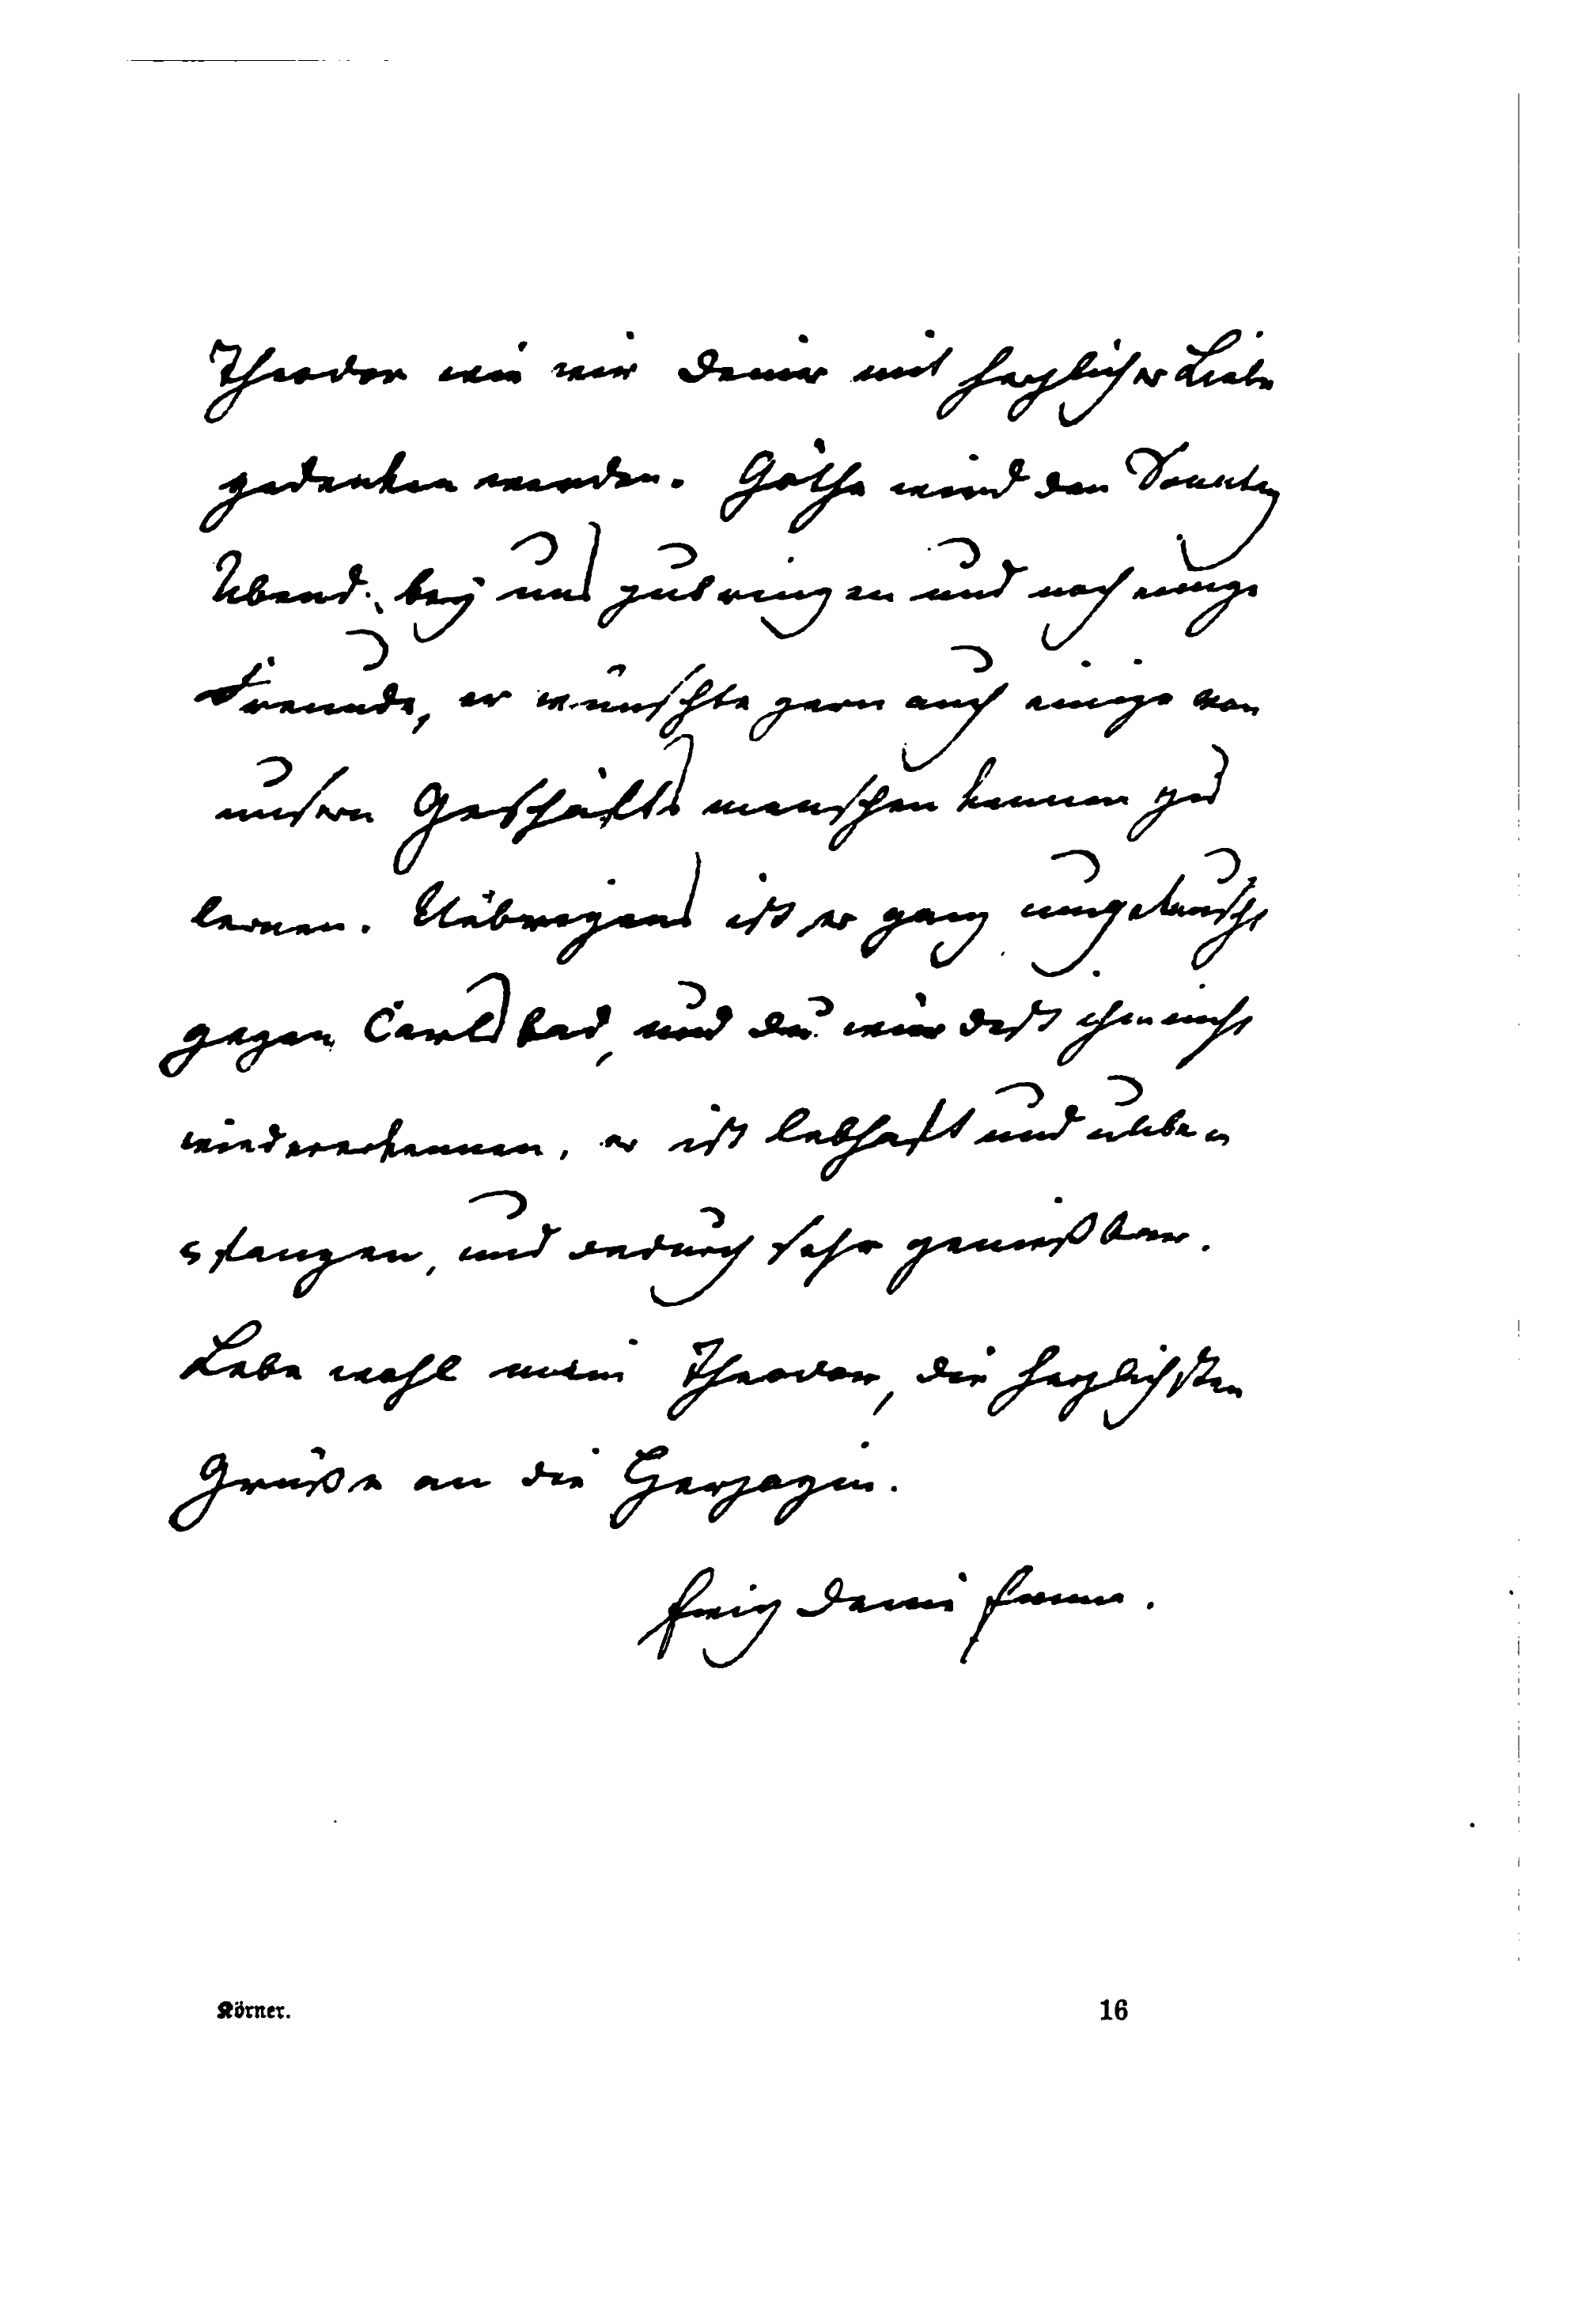 Theodor wie wir Deiner mit herzlicher Liebe
gedenken werden. Göthe wird den Sonntag
Abend bey uns zubringen und noch einige
Freunde, er wünschte gern auch einige von
unsern Geschäfts menschen kennen zu
lernen. Uebrigens ist er ganz umgetauscht
gegen Carlsbad, und du würdest ihn nicht
wiedererkennen, er ist lebhaft und unbe
fangen, und dadurch sehr genießbar.
Lebe wohl mein Theodor, die herzlichsten
Grüße an die Herzogin.
Ewig Deine Emma.
Körner. 16